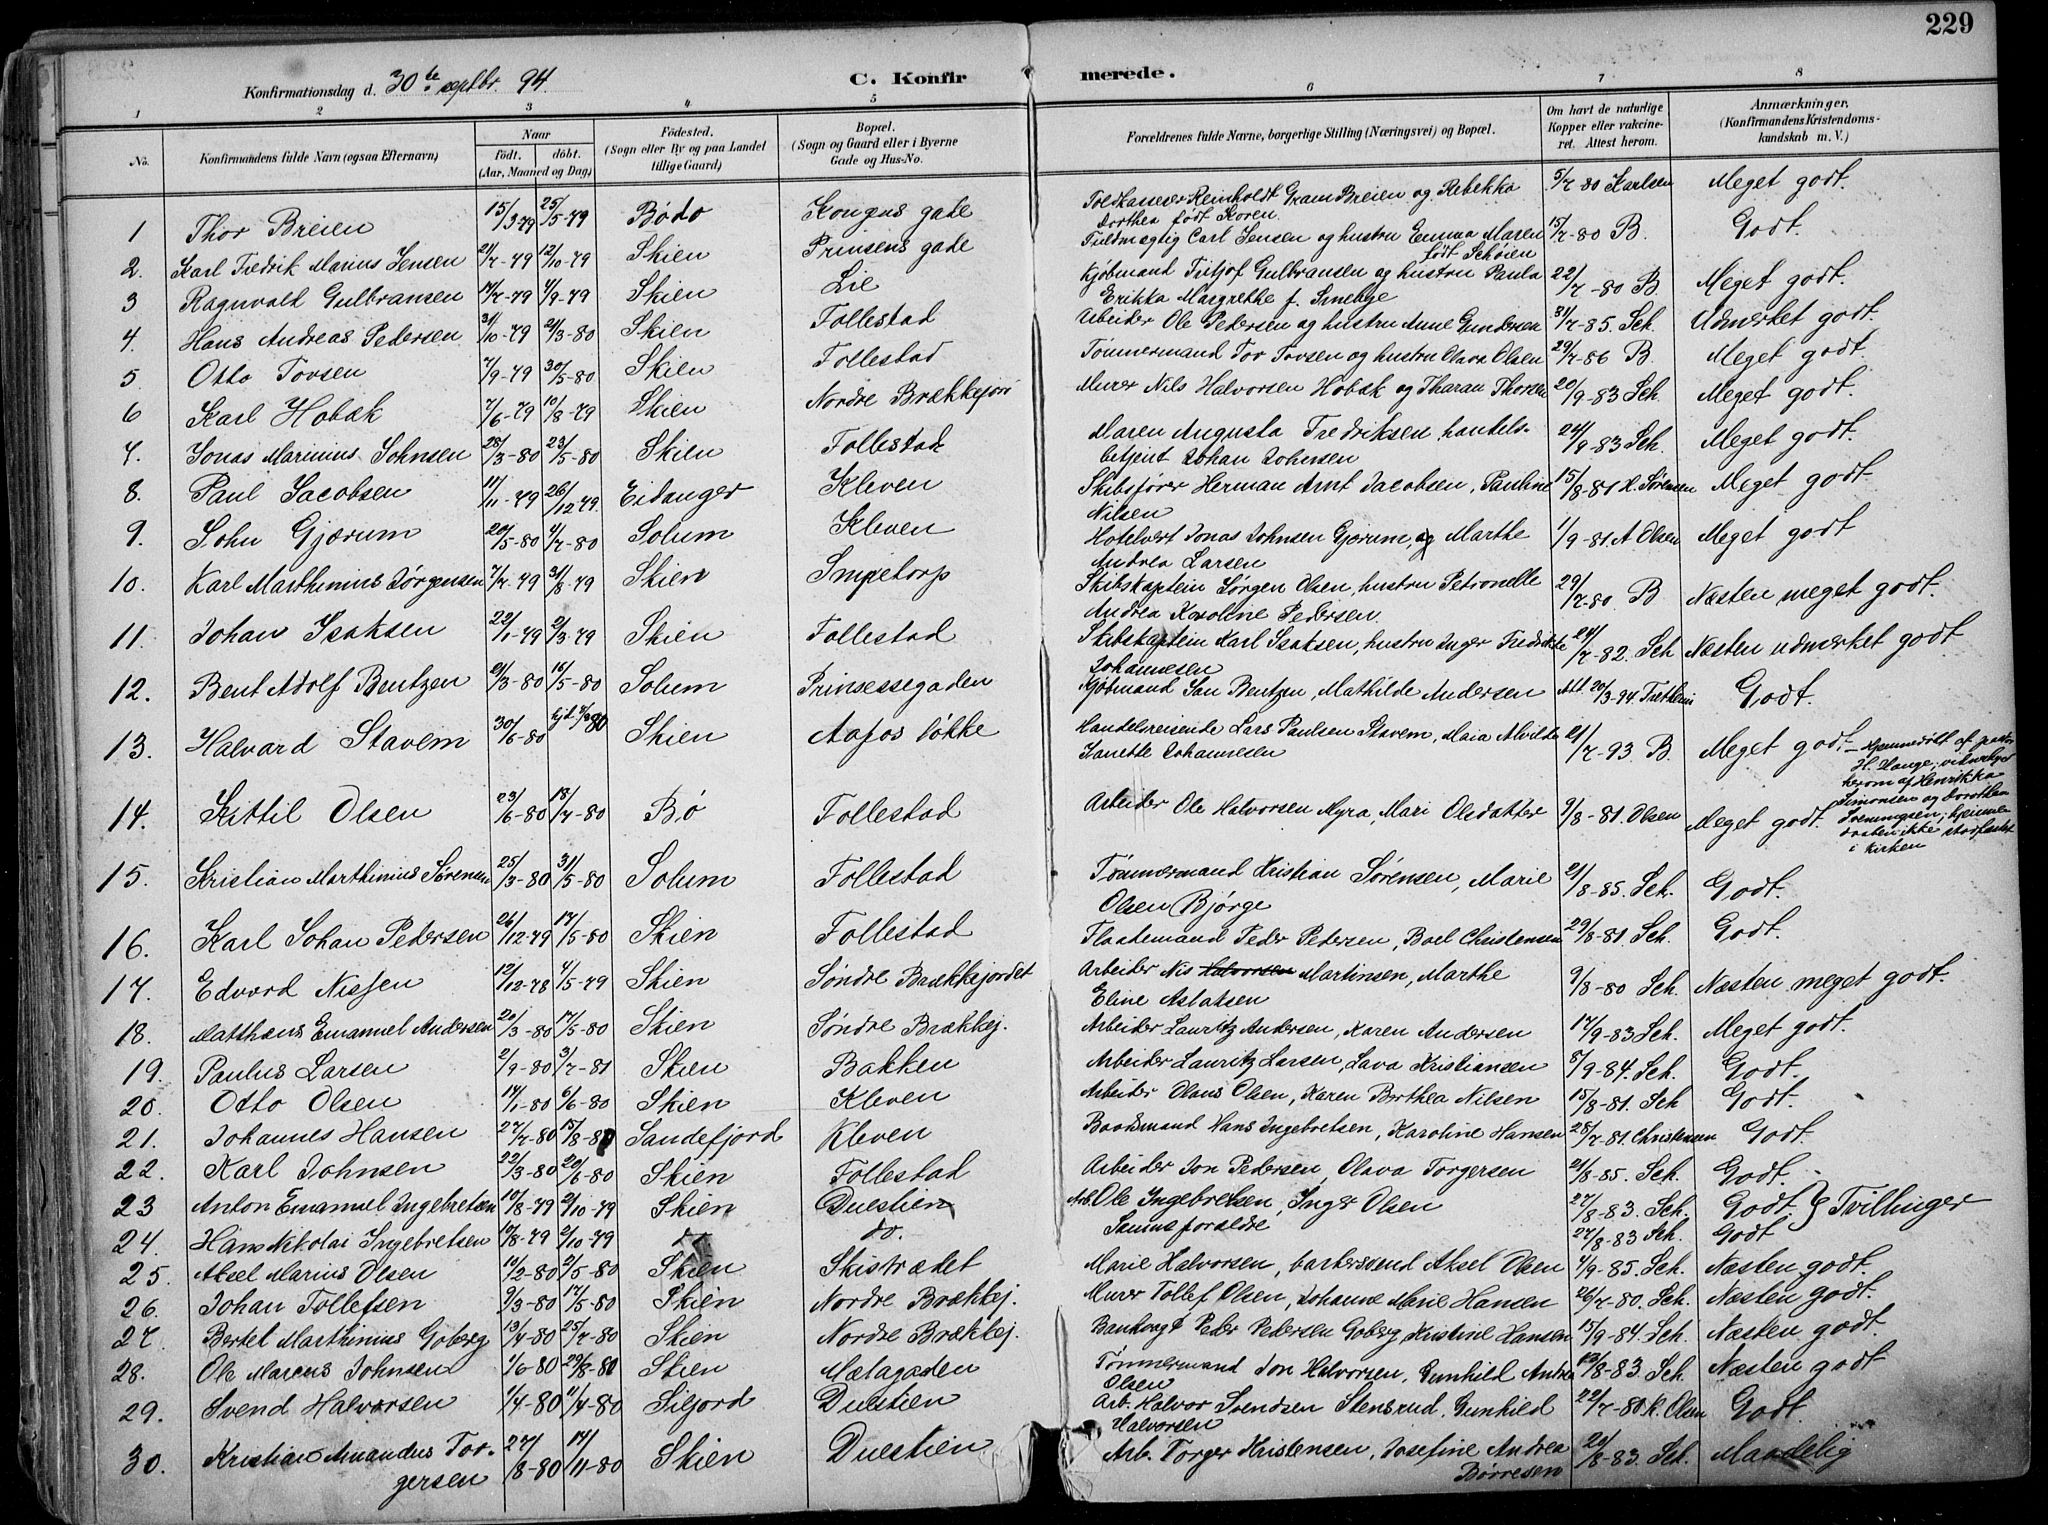 229
Konfirmationsdag d. 30te septbr. 94. C. Konfir merede.
1 2 3 4 5 6 7 8
No. Konfirmandens fulde Navn (ogsaa Efternavn) Naar födt. döbt. (Aar, Maaned og Dag) Födested. (Sogn eller By og paa Landet tillige Gaard) Bopæl. (Sogn og Gaard eller i Byerne Gade og Hus-No. Forældrenes fulde Navne, borgerlige Stilling (Næringsvei) og Bopæl. Om havt de naturlige Kopper eller vakcineret. Attest herom. Anmærkninger. (Konfirmandens Kristendomskundskab m. V.)
1 Thor Breien 15/3 79 25/5-79 Bodo Kongens gade Toldkasserer Reinholdt Gram Breien og Rebekka Dorthea født Koren. 5/7-80 Karlsen Meget godt.
2. Karl Fredrik Marius Jensen 21/7-79 12/10-79 Skien Prinsens gade Fuldmægtig Carl Jensen og hustru Emma Maren født Schøien 15/7-80 B. Godt.
3 Ragnvald Gulbransen 17/7-79 4/9-79 Skien Lie Kjøbmand Fritjof Gulbransen og hustru Paula Erikka Margrethe f. 22/7-80 B Meget godt.
4. Hans Andreas Pedersen 31/10-79 21/3-80 Skien Follestad Arbeider Ole Pedersen og hustru Anne Gundersen 31/7-85. Sch. Udmerket godt.
5 Otto Tovsen 7/9-79 30/5-80 Skien Follestad Tømmermand Tov Tovsen og hustru Olava Olsen 29/7-86 B Meget godt.
6 Karl Hobæk 7/6-79 10/8-79 Skien Nordre Brækkejord Murer Nils Halvorsen Hobæk og Tharan Thorsen 20/9-83 Sch. Meget godt.
7. Jonas Marinius Johnsen 28/3-80 23/5-80 Skien Follestad Maren Augusta Fredriksen, handelsbetjent Johan Johnsen 24/9-83 Sch. Meget godt.
8. Paul Jacobsen 17/11-79 26/12-79. Eidanger Kleven Skibsfører Herman Arnt Jacobsen, Pauline Nilsen 15/8-81 H. Sørensen Meget godt
9. John Gjærum 20/5-80 4/7-80 Solum Kleven Hotelvert Jonas Johnsen Gjærum, og Marthe Andrea Larsen 1/9-81. A Olsen Meget godt
10. Karl Marthinius Jörgensen 7/7-79 31/8-79 Skien Smietorp Skibskaptein Jørgen Olsen, hustru Petronelle Andrea Karoline Pedersen. 29/7-80. B Næsten meget godt.
11. Johan Isaksen 22/1-79 2/3-79 Skien Follestad Skibskaptein Karl Isaksen, hustru Inger Fredrikke Johannesen 24/7-82. Sch Næsten udmerket godt.
12. Bent Adolf Bentzen 21/3-80 16/5-80 Solum Prinsessegaden Kjøbmand Jan Bentzen, Mathilde Andersen Att. 20/3-94. Godt.
13. Halvard Stavem 30/6-80 Skien Aafos løkke Handelsreisende Lars Paulsen Stavem, Maia Alvilde Janette Johannesen 21/7-93. B. Meget godt. – Hjemmedøbt af pastor H. Hauge; vidnerlyget herom af Henrikka Simonsen og Dorothea Svenningsen; hjemmedaaben ikke stadfæstet i kirken
14. Kittil Olsen 23/6-80 18/7-80 Bø Follestad Arbeider Ole Halvorsen Myra, Mari Olsdatter 9/8-81. Olsen Meget godt.
15. Kristian Marthinius Sørensen 25/3-80 31/5-80 Solum Follestad Tømmermand Kristian Sørensen, Marie Olsen Bjørge 21/8-85. Sch. Godt.
16. Karl Johan Pedersen 26/12-79 17/5-80 Skien Follestad Flaademand Peder Pedersen, Boel Christensen 29/8-81. Sch. Godt.
17. Edvard Nissen 12/12-78 4/5-79 Skien Søndre Brækkejordet Arbeider Nis Halvorsen Martinsen, Marthe Eline Aslaksen 9/8-80 Sch. Næsten meget godt.
18. Matthæus Emanuel Andersen 20/3-80 17/5-80 Skien Søndre Brækkej. Arbeider Lauritz Andersen, Karen Andersen 17/9-83 Sch. Meget godt.
19. Paulus Larsen 2/9-80 3/7-81 Skien Bakken Arbeider Lauritz Larsen, Lava Kristiansen 8/9-84. Sch. Godt.
20. Otto Olsen 14/1-80 6/6-80 Skien Kleven Arbeider Olaus Olsen, Karen Berthea Nilsen 15/8-81. Sch Godt.
21. Johannes Hansen 27/7-80 15/8-8 Sandefjord Kleven Baadsmand Hans Ingebretsen, Karoline Hansen 28/7-81 Christensen Godt.
22. Karl Johnsen 22/3-80 20/6-80 Skien Follestad Arbeider Jon Pedersen, Olava Torgersen 21/8-85. Sch. Godt.
23 Anton Emanuel Ingebretsen 10/8-79 2/10-79 Skien Duestien Arb. Ole Ingebretsen, Inger Olsen 27/8-83. Sch. Godt. } Tvillinger
24. Hans Nikolai Ingebretsen 10/8-79 2/10-79 do. Samme forældre 27/8-83 Sch. Godt
25. Aksel Marius Olsen 10/2-80 2/5-80 Skien Skistrædet Marie Halvorsen, barbersvend Aksel Olsen 4/9-85. Sch. Næsten godt.
26. Johan Tollefsen 9/3-80 17/5-80 Skien Nordre Brækkej. Murer Tollef Olsen, Johanne Marie Hansen 26/7-80. Sch. Næsten godt.
27. Bertel Marthinius Goberg 13/4-80 25/7-80 Skien Nordre Brækkej. Bankvagt Peder Pedersen Goberg, Kristine Hansen 15/9-84. Sch. Næsten godt.
28. Ole Marcus Johnsen 1/6-80 29/8-80 Skien Mælagaden Tømmermand Jon Halvorsen, Gunhild Andrea Olsen 13/8-83. Sch. Næsten godt
29. Svend Halvorsen 1/4-80 11/4-80 Siljord Duestien Arb. Halvor Svendsen Stensrud, Gunhild Halvorsen 22/7-80 K. Olsen Godt.
30. Kristian Amandus Torgersen 27/8-80 14/11-80 Skien Duestien Arb. Torger Kristensen, Josefine Andrea Börresen 20/8-83. Sch. Maadelig